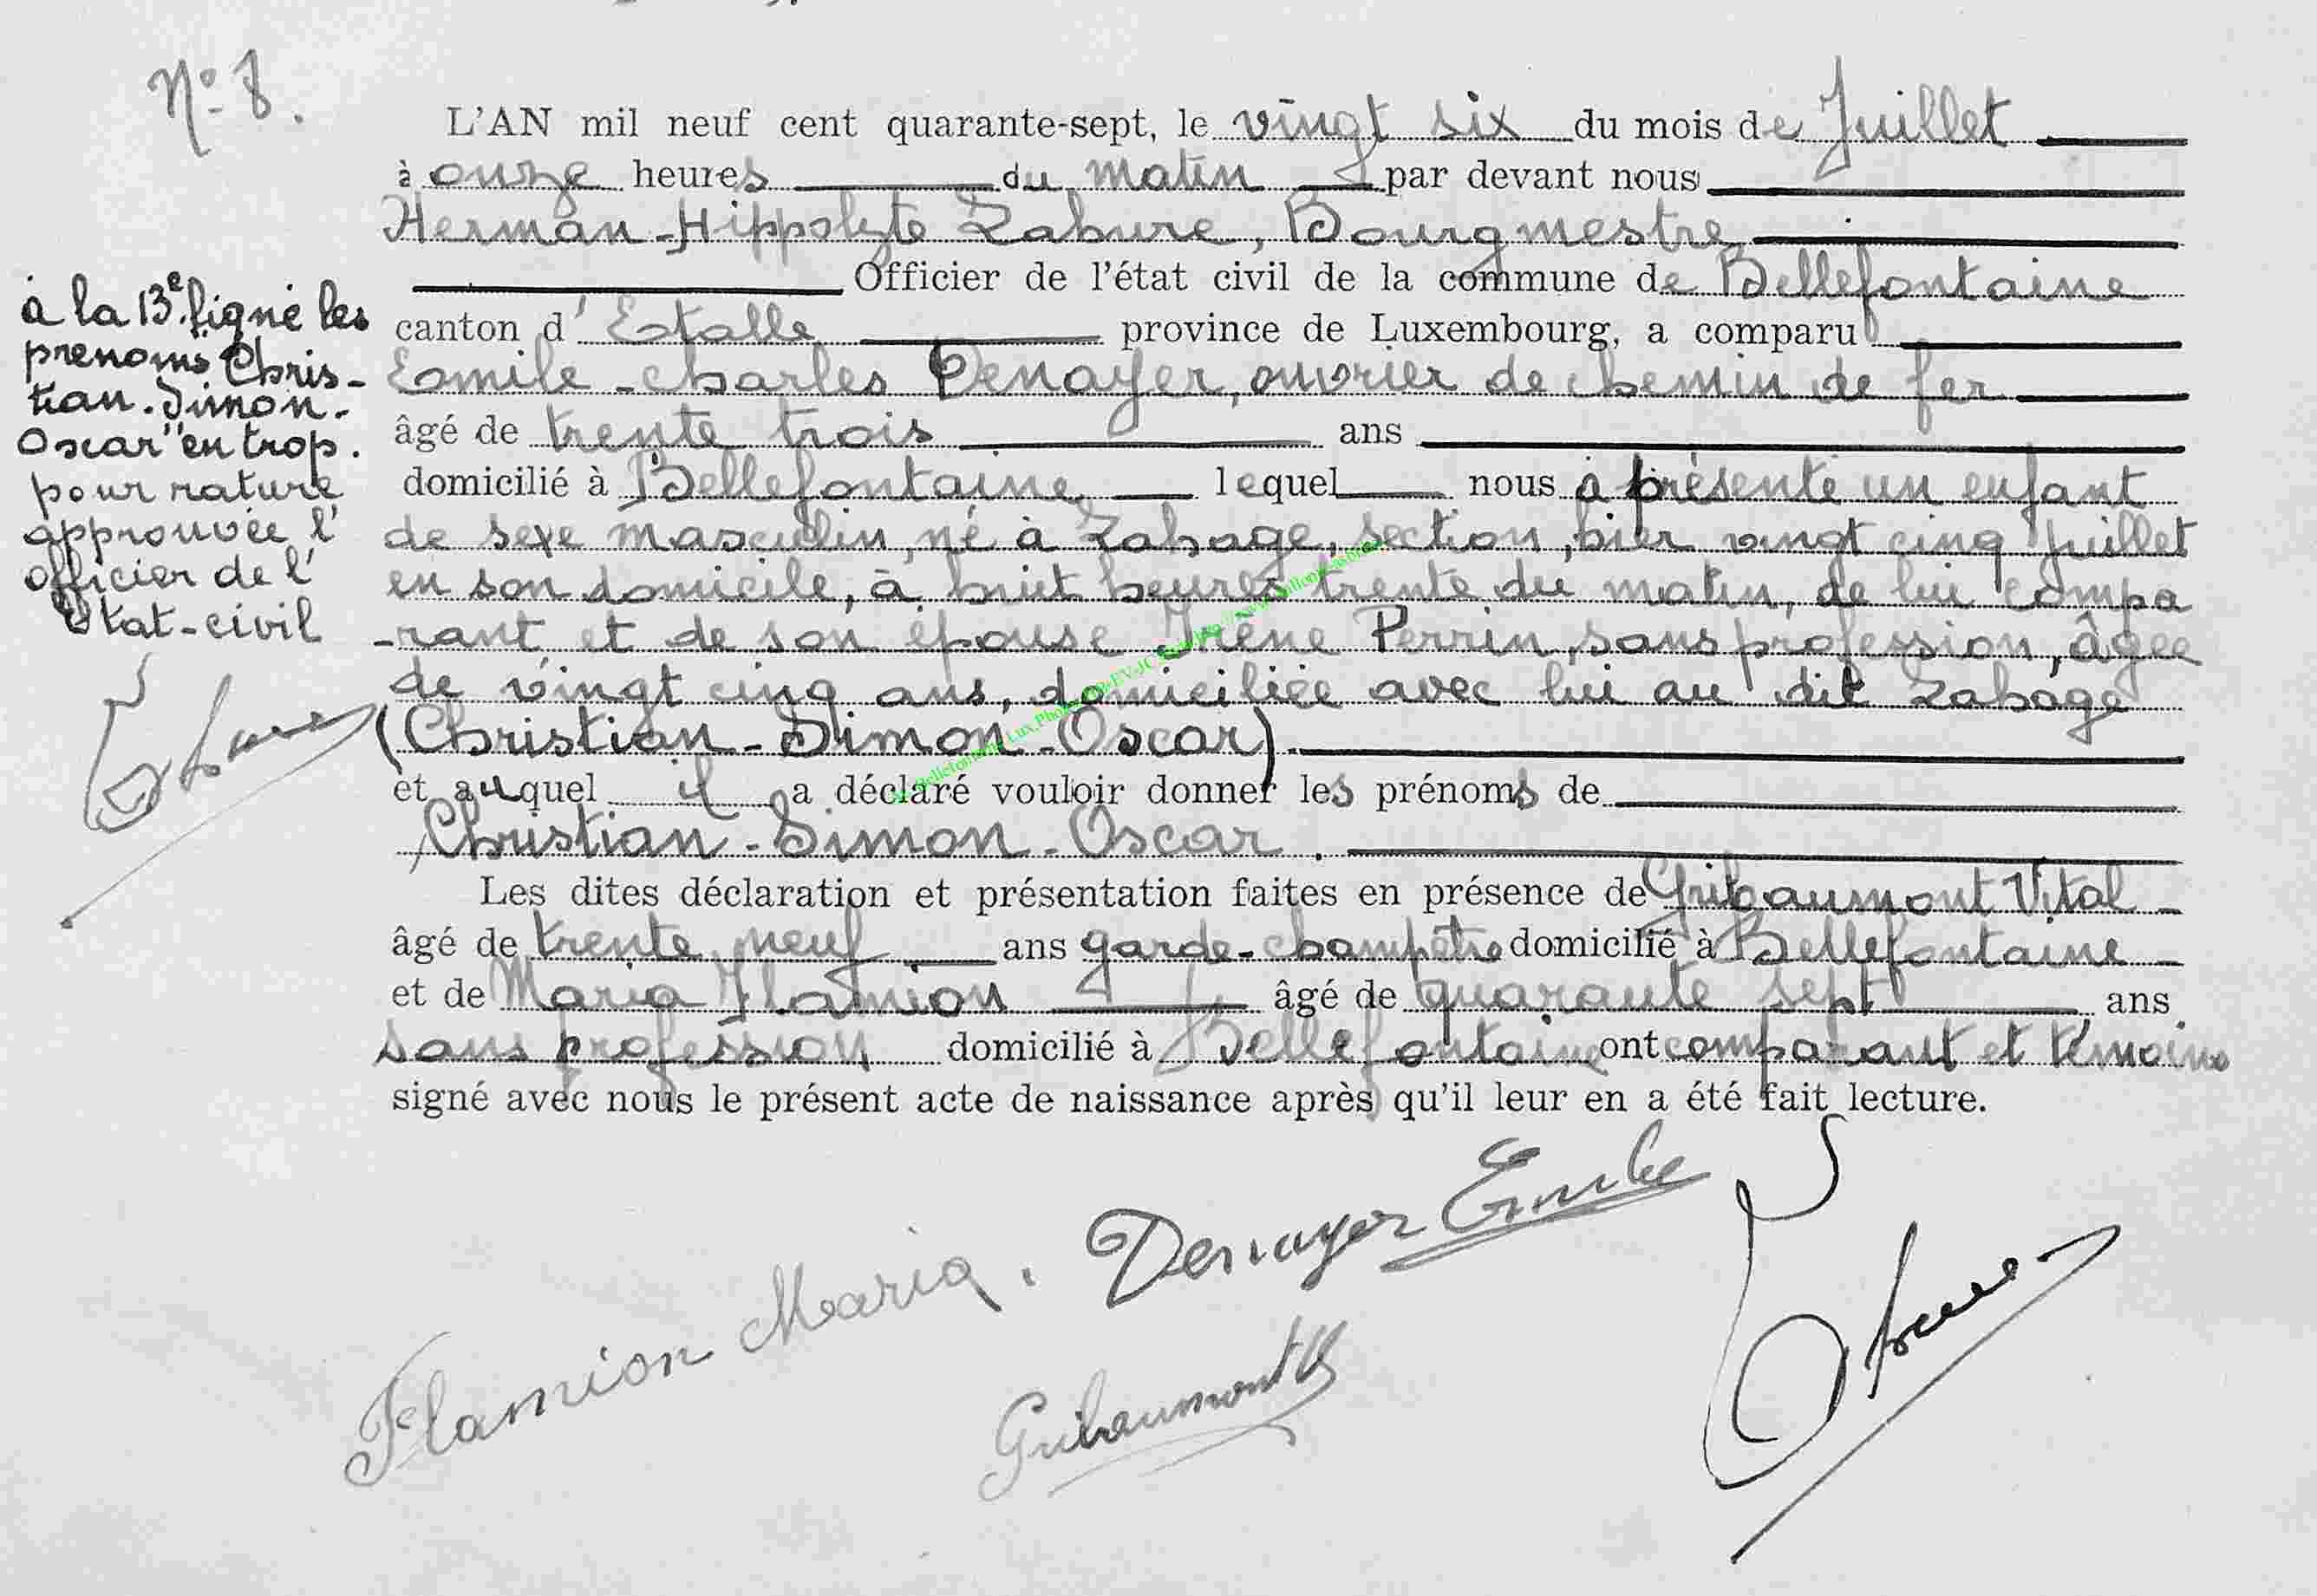 N° 8.
L'AN mil neuf cent quarante-sept, le vingt six du mois de Juillet
à onze heures du matin par devant nous
Herman-Hippolyte Labure, Bourgmestre
Officier de l'état civil de la commune de Bellefontaine
canton d'Etalle province de Luxembourg, a comparu
Emile-Charles Denayer, ouvrier de chemin de fer
âgé de trente trois ans
domicilié à Bellefontaine lequel nous a présenté un enfant
de sexe masculin, né à Lahage, section, hier vingt cinq Juillet
en son domicile, à huit heures trente du matin, de lui compa
-rant et de son épouse Irène Perrin, sans profession, âgée
de vingt cinq ans, domiciliée avec lui au dit Lahage
(Christian-Simon-Oscar).
et auquel il a déclaré vouloir donner les prénoms de
Christian-Simon-Oscar.
Les dites déclaration et présentation faites en présence de Gribaumont Vital
âgé de trente neuf ans garde-champêtre domicilié à Bellefontaine
et de Maria Flamion âgé de quarante sept ans
sans profession domicilié à Bellefontaine ont comparant et témoins
signé avec nous le présent acte de naissance après qu'il leur en a été fait lecture.
à la 13e ligne les
prenoms "Chris-
tian-Simon-
Oscar" en trop.
pour rature
approuvée l'
officier de l'
Etat-civil
Flamion Maria.
Denayer Emile
Gribaumont V